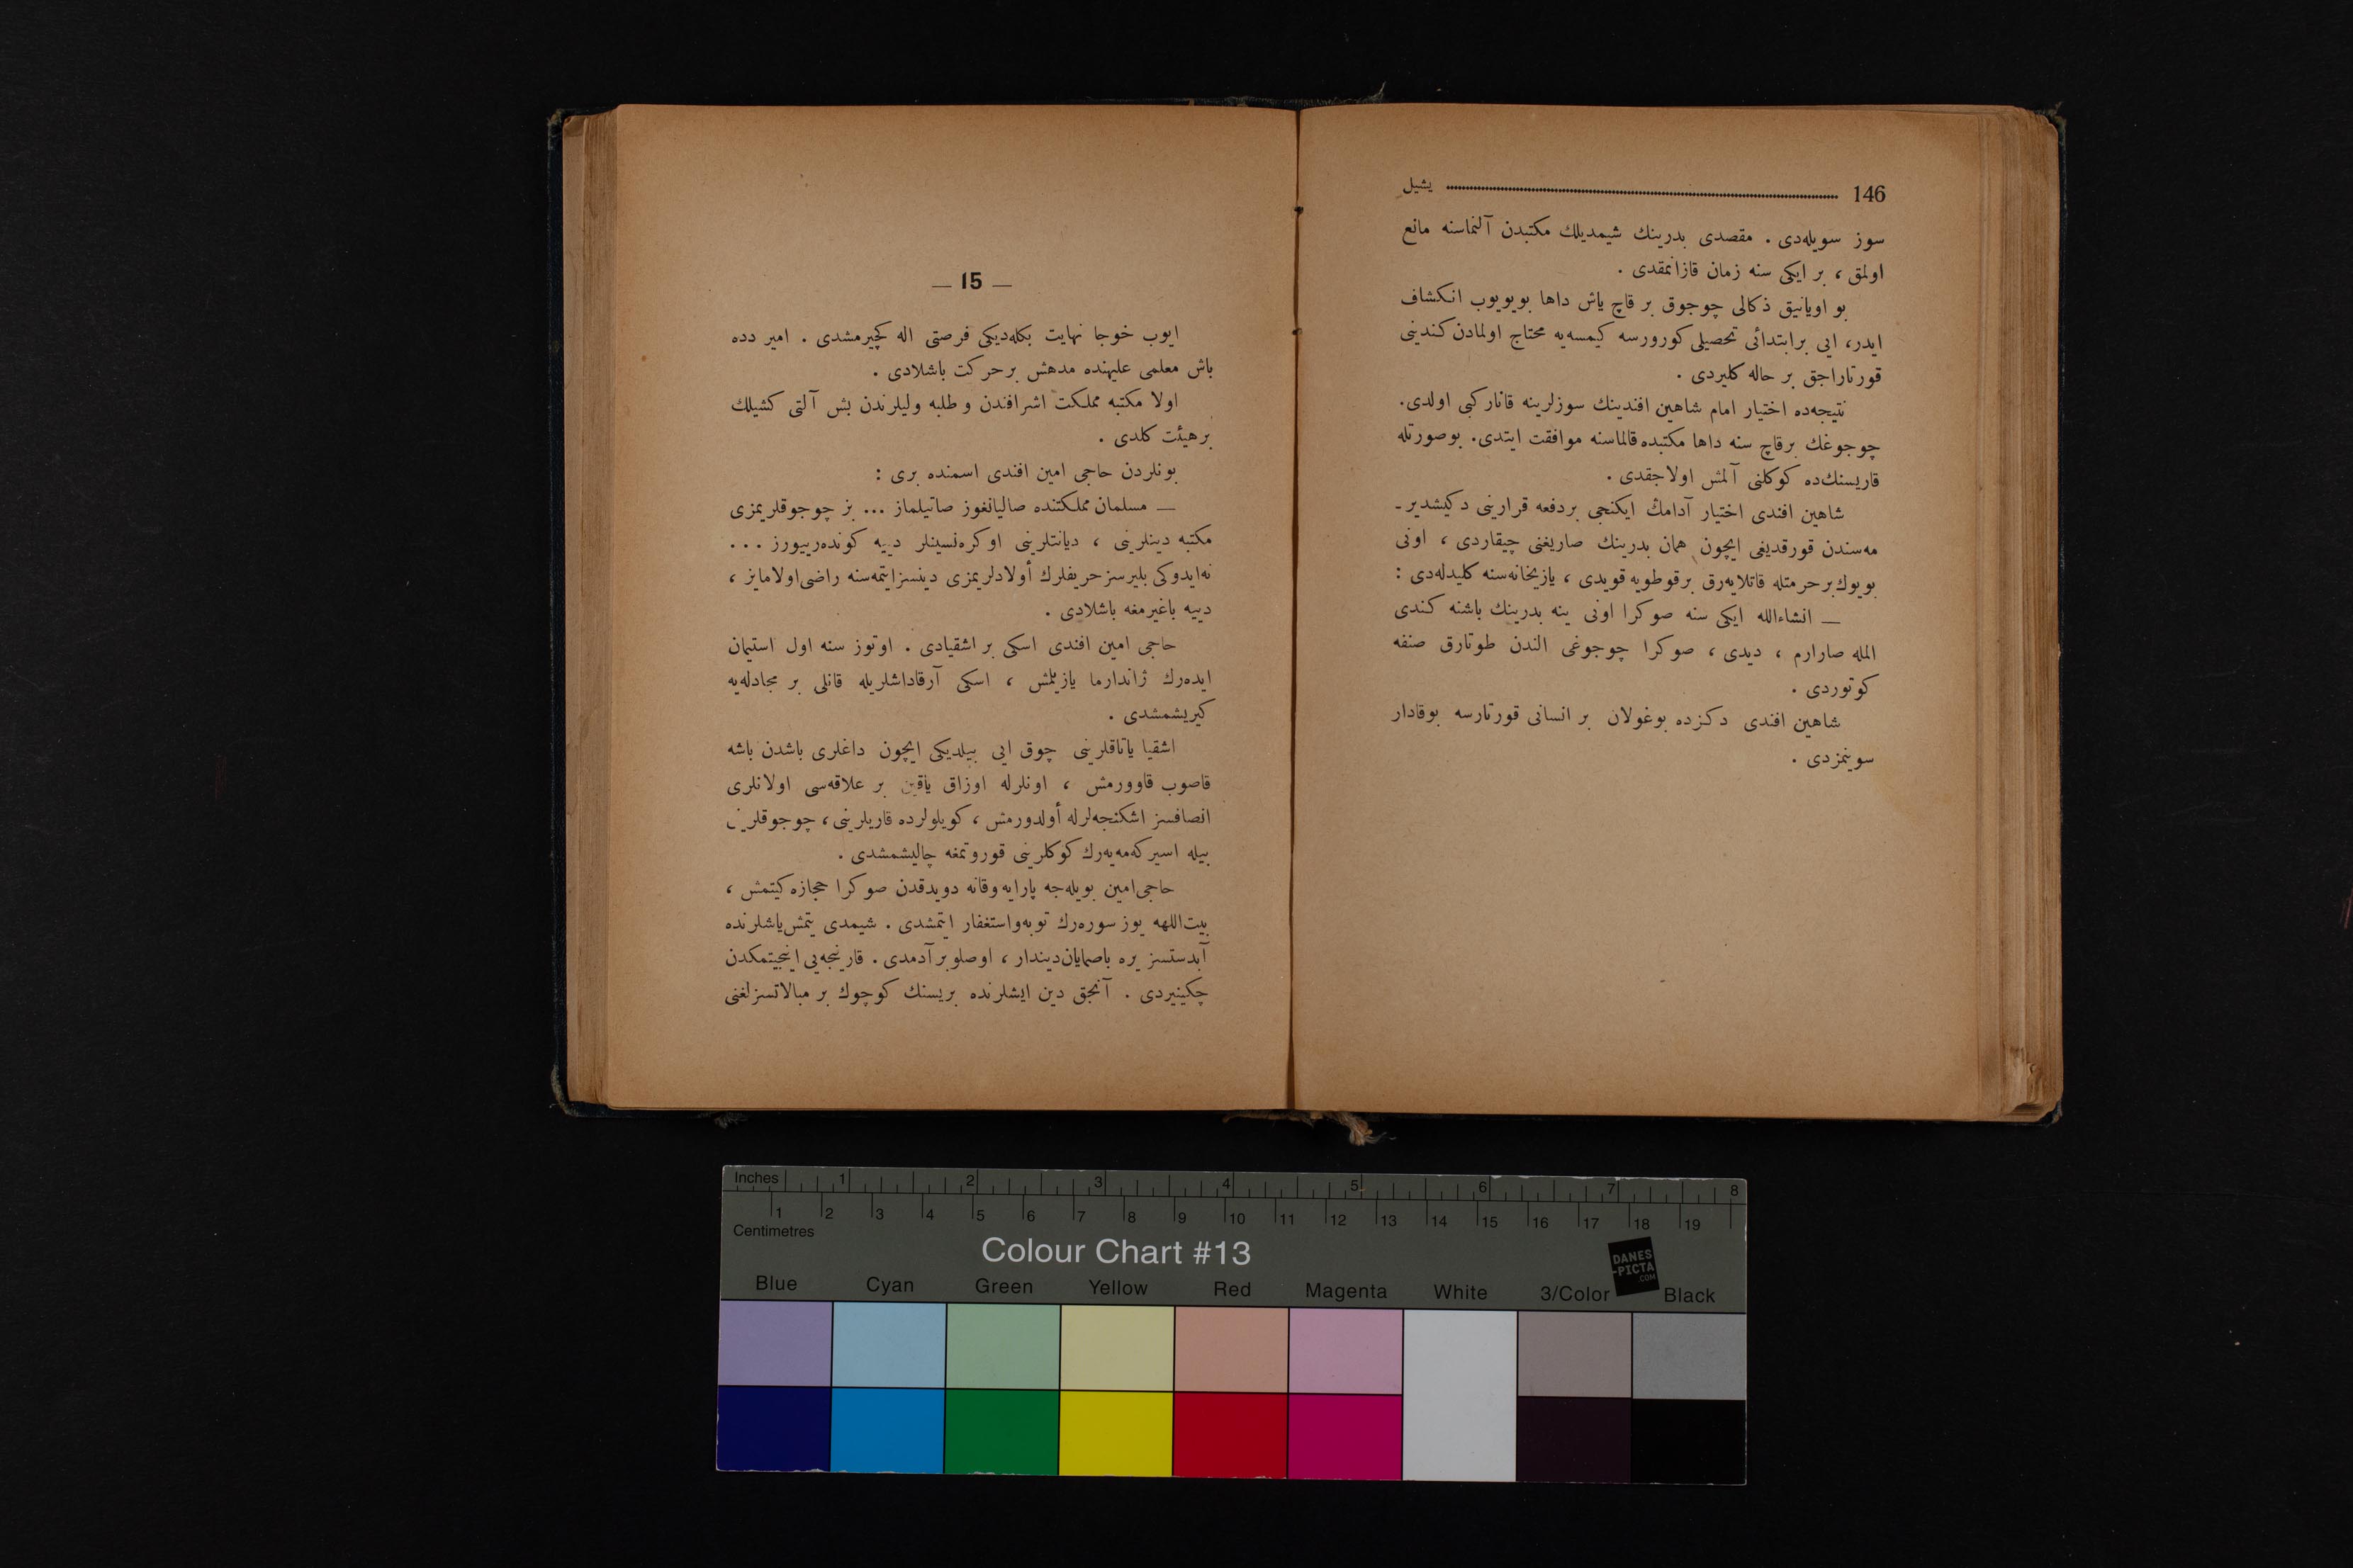 146 یشیل
سوز سویله‌دی . مقصدی بدرینك شیمدیلك مكتبدن آلنماسنه مانع
اولمق ، بر ایكی سنه زمان قازانمقدی .
بو اویانیق ذكالی چوجوق بر قاچ یاش داها بویویوب انكشاف
ایدر، ایی برابتدائی تحصیلی كورورسه كیمسه‌یه محتاج اولمادن كندینی
قورتاراجق بر حاله كلیردی .
نتیجه‌ده اختیار امام شاهین افندینك سوزلرینه قانار كبی اولدی.
چوجوغك برقاچ سنه داها مكتبده قالماسنه موافقت ایتدی. بوصورتله
قاریسنك‌ده كوكلنی آلمش اولاجقدی .
شاهین افندی اختیار آدامك ایكنجی بردفعه قرارینی دكیشدیر ـ
مه‌سندن قورقدیغی ایچون همان بدرینك صاریغنی چیقاردی ، اونی
بویوك برحرمتله قاتلایه‌رق برقوطویه قویدی ، یازیخانه‌سنه كلیدله‌دی :
— انشاءالله ایكی سنه صوكرا اونی ینه بدرینك باشنه كندی
المله صارارم ، دیدی ، صوكرا چوجوغی الندن طوتارق صنفه
كوتوردی .
شاهین افندی دكزده بوغولان بر انسانی قورتارسه بوقادار
سوینمزدی .
— 15 —
ایوب خوجا نهایت بكله‌دیكی فرصتی اله كچیرمشدی . امیر دده
باش معلمی علیهنده مدهش برحركت باشلادی .
اولا مكتبه مملكت اشرافندن و طلبه ولیلرندن بش آلتی كشیلك
برهیئت كلدی .
بونلردن حاجی امین افندی اسمنده بری :
— مسلمان مملكتنده صالیانغوز صاتیلماز ... بز چوجوقلریمزی
مكتبه دینلرینی ، دیانتلرینی اوكره‌نسینلر دییه كونده‌رییورز ...
نه‌ایدوكی بلیرسز حریفلرك أولادلریمزی دینسزایتمه‌سنه راضی‌اولامایز ،
دییه باغیرمغه باشلادی .
حاجی امین افندی اسكی بر اشقیادی . اوتوز سنه اول استیمان
ایده‌رك ژاندارما یازیلمش ، اسكی آرقاداشلریله قانلی بر مجادله‌یه
كیریشمشدی .
اشقیا یاتاقلرینی چوق ایی بیلدیكی ایچون داغلری باشدن باشه
قاصوب قاوورمش ، اونلرله اوزاق یاقین بر علاقه‌سی اولانلری
انصافسز اشكنجه‌لرله أولدورمش ، كویلولرده قاریلرینی ، چوجوقلرینی
بیله اسیركه‌مه‌یه‌رك كوكلرینی قوروتمغه چالیشمشدی .
حاجی‌امین بویله‌جه پارایه وقانه دویدقدن صوكرا حجازه كیتمش ،
بیت‌اللهه یوز سوره‌رك توبه‌واستغفار ایتمشدی . شیمدی یتمش‌یاشلرنده
آبدستسز یره باصمایان‌دیندار ، اوصلو بر آدمدی . قارینجه‌یی اینجیتمكدن
چكینیردی . آنجق دین ایشلرنده بریسنك كوچوك بر مبالاتسزلغنی
Inches 1 2 3 4 5 6 7 8
1 2 3 4 5 6 7 8 9 10 11 12 13 14 15 16 17 18 19
Centimetres
Colour Chart #13
DANES
-PICTA
.COM
Blue Cyan Green Yellow Red Magenta White 3/Color Black